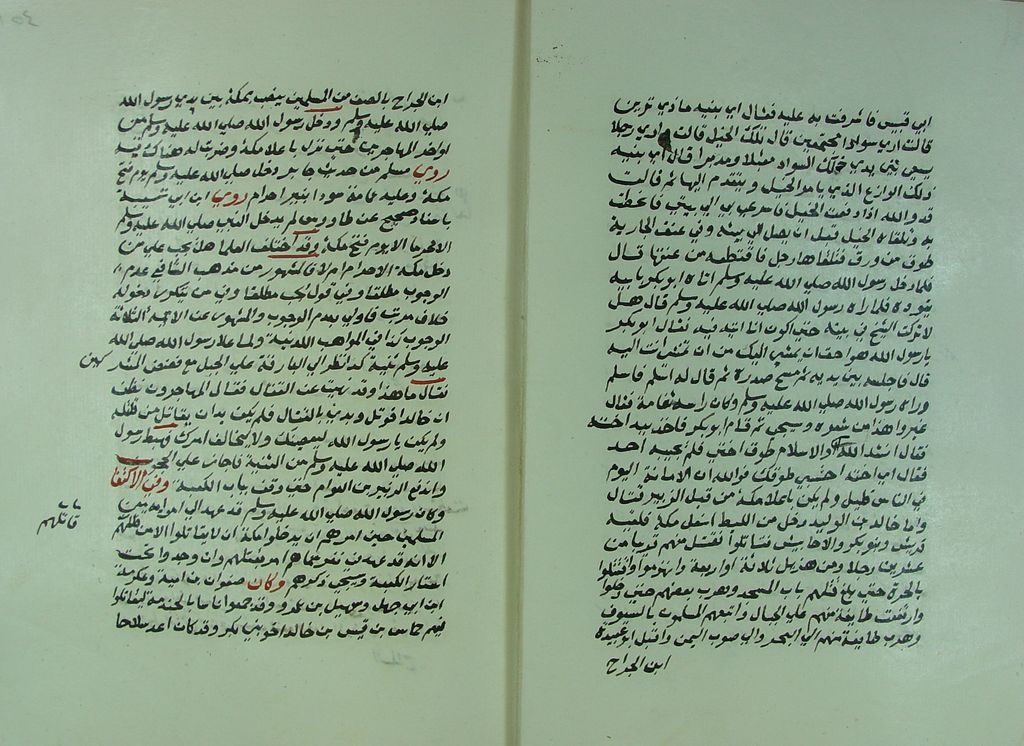 ابي قبيس فاشرفت به عليه فقال اي بنيه ماذي ترين
قالت اري سوادا مجتمعين قال تلك الخيل قالت واري رجلا
يسعي بين يدي ذلك السواد مقبلا ومدبرا قال اي بنيه
ذلك الوازع الذي يامر الخيل ويتقدم اليها ثم قالت
قد والله اذا دفعت الخيل فاسرعي بي الي بيتي فانحطت
به وتلقاه الخيل قبل ان يصل الي بيته وفي عنق الجارية
طوق من ورق فتلقاها رجل فاقتطعه من عنقها قال
فلما دخل رسول الله صلي الله عليه وسلم اتاه ابو بكر بابيه
يقوده فلما راه رسول الله صلي الله عليه وسلم قال هل
لا تركت الشيخ في بيته حتي اكون انا اتيه فيه فقال ابو بكر
يا رسول الله هو احق ان يمشي اليك من ان تمشي انت اليه
قال فاجلسه بين يديه ثم مسح صدره ثم قال له اسلم فاسلم
وراه رسول الله صلي الله عليه وسلم وكان راسه ثغامة فقال
غيروا هذا من شعره وسيجي ثم قام ابو بكر فاخذ بيد اخته
فقال انشد الله والاسلام طوق اختي فلم يجبه احد
فقال اي اخته احتسبي طوقك فوالله ان الامانة اليوم
في الناس قليل ولم يكن باعلا مكة من قبل الزبير قتال
واما خالد بن الوليد دخل من الليط اسفل مكة فلقيه
قريش وبنو بكر والاحابيش فقاتلوا فقتل منهم قريبا من
عشرين رجلا ومن هذيل ثلاثة او اربعة وانهزموا وقتلوا
بالحزورة حتي بلغ قتلهم باب المسجد وهرب بعضهم حتي دخلوا
وارتفعت طايفة منهم علي الجبال واتبعهم المسلمون بالسيوف
وهرب طايفة منهم الي البحر والي صوب اليمن واقبل ابو عبيدة
ابن الجراح
ابن الجراح بالصف من المسلمين ينصب بمكة بين يدي رسول الله
صلي الله عليه وسلم ودخل رسول الله صلي الله عليه وسلم من
اواخر المهاجرين حتي نزل باعلا مكة وضربت له هناك قبة
روي مسلم من حديث جابر دخل صلي الله عليه وسلم يوم فتح
مكة وعليه عمامة سودا بغير احرام روي ابن ابي شيبة
باسناد صحيح عن طاووس لم يدخل النبي صلي الله عليه وسلم
الا محرما الا يوم فتح مكة وقد اختلف العلما هل يجب علي من
دخل مكة الاحرام ام لا فالمشهور من مذهب الشافعي عدم
الوجوب مطلقا وفي قول يجب مطلقا وفي من يتكرر دخوله
خلاف مرتب فاولي بعدم الوجوب والمشهور عن الائمة الثلاثة
الوجوب كذا في المواهب اللدنية ولما علا رسول الله صلي الله
عليه وسلم ثنية كدا نظر الي البارقة علي الجبل مع فضض المشركين
فقال ما هذا وقد نهيت عن القتال فقال المهاجرون نظن
ان خالدا قوتل وبدي بالقتال فلم يكن بد ان يقاتل من قاتله
ولم يكن يا رسول الله ليعصيك ولا ليخالف امرك فهبط رسول
الله صلي الله عليه وسلم من الثنية فاجاز علي الحجون
واندفع الزبير بن العوام حتي وقف بباب الكعبة وفي الاكتفا
وكان رسول الله صلي الله عليه وسلم قد عهد الي امرائه من
المسلمين حين امرهم ان يدخلوا مكة ان لا يقاتلوا الا من قاتلهم
قاتلهم
الا انه قد عهد في نفر سماهم امر بقتلهم وان وجدوا تحت
استار الكعبة وسيجي ذكرهم وكان صفوان بن امية وعكرمة
ابن ابي جهل وسهيل بن عمرو وقد جمعوا ناسا بالخندمة ليقاتلوا
فيهم حماس بن قيس بن خالد اخو بني بكر وقد كان اعد سلاحا